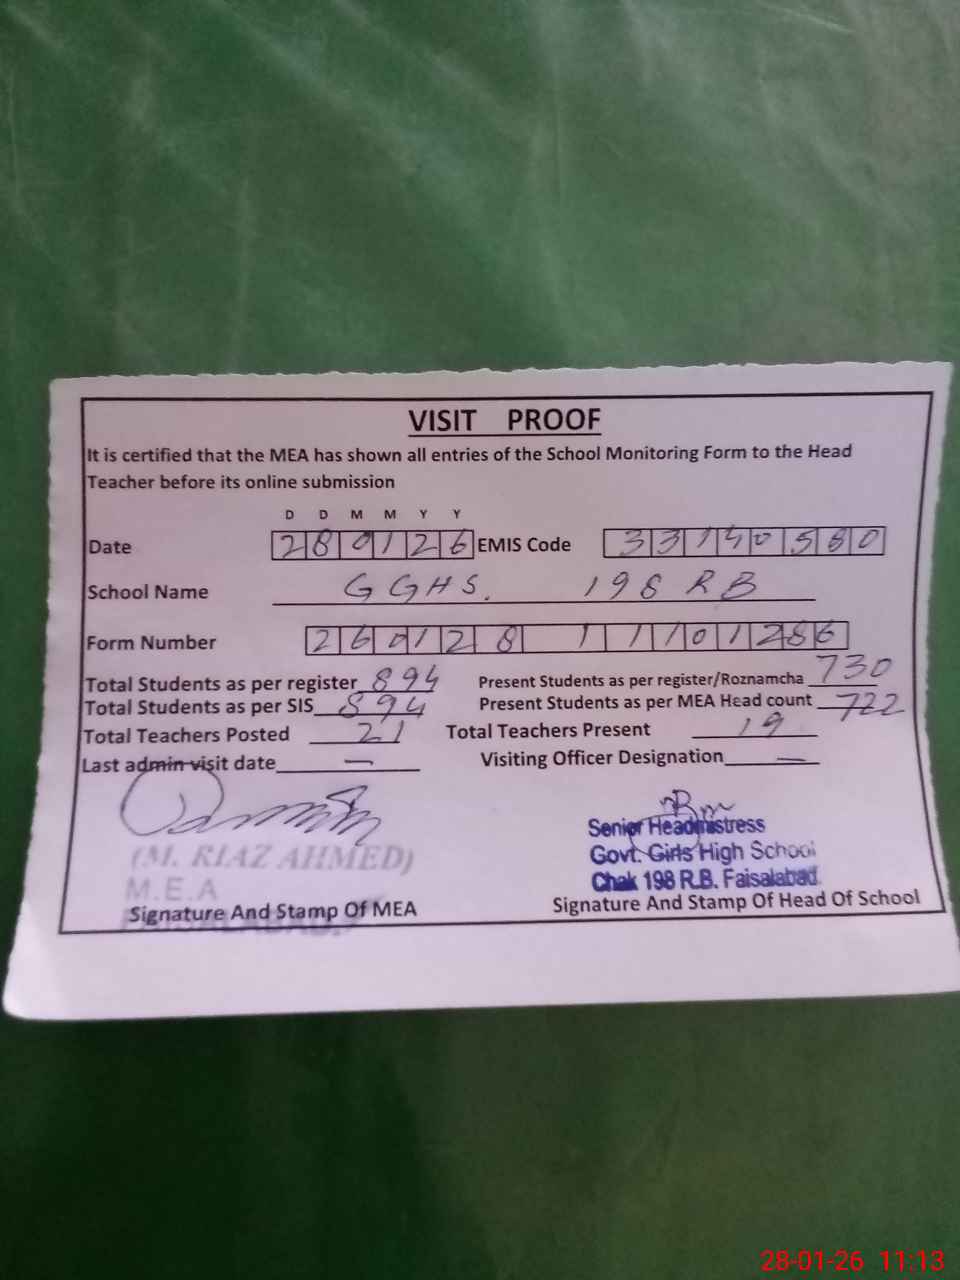 VISIT PROOF
It is certified that the MEA has shown all entries of the School Monitoring Form to the Head
Teacher before its online submission
D D M M Y Y
Date 280126 EMIS Code 33140580
School Name GGHS. 198 RB
Form Number 260128 11101286
Total Students as per register 894 Present Students as per register/Roznamcha 730
Total Students as per SIS 894 Present Students as per MEA Head count 722
Total Teachers Posted 21 Total Teachers Present 19
Last admin visit date — Visiting Officer Designation —
(M. RIAZ AHMED)
M.E.A
FAISALABAD.
Signature And Stamp Of MEA
Senior Headmistress
Govt. Girls High School
Chak 198 R.B. Faisalabad.
Signature And Stamp Of Head Of School
28-01-26 11:13